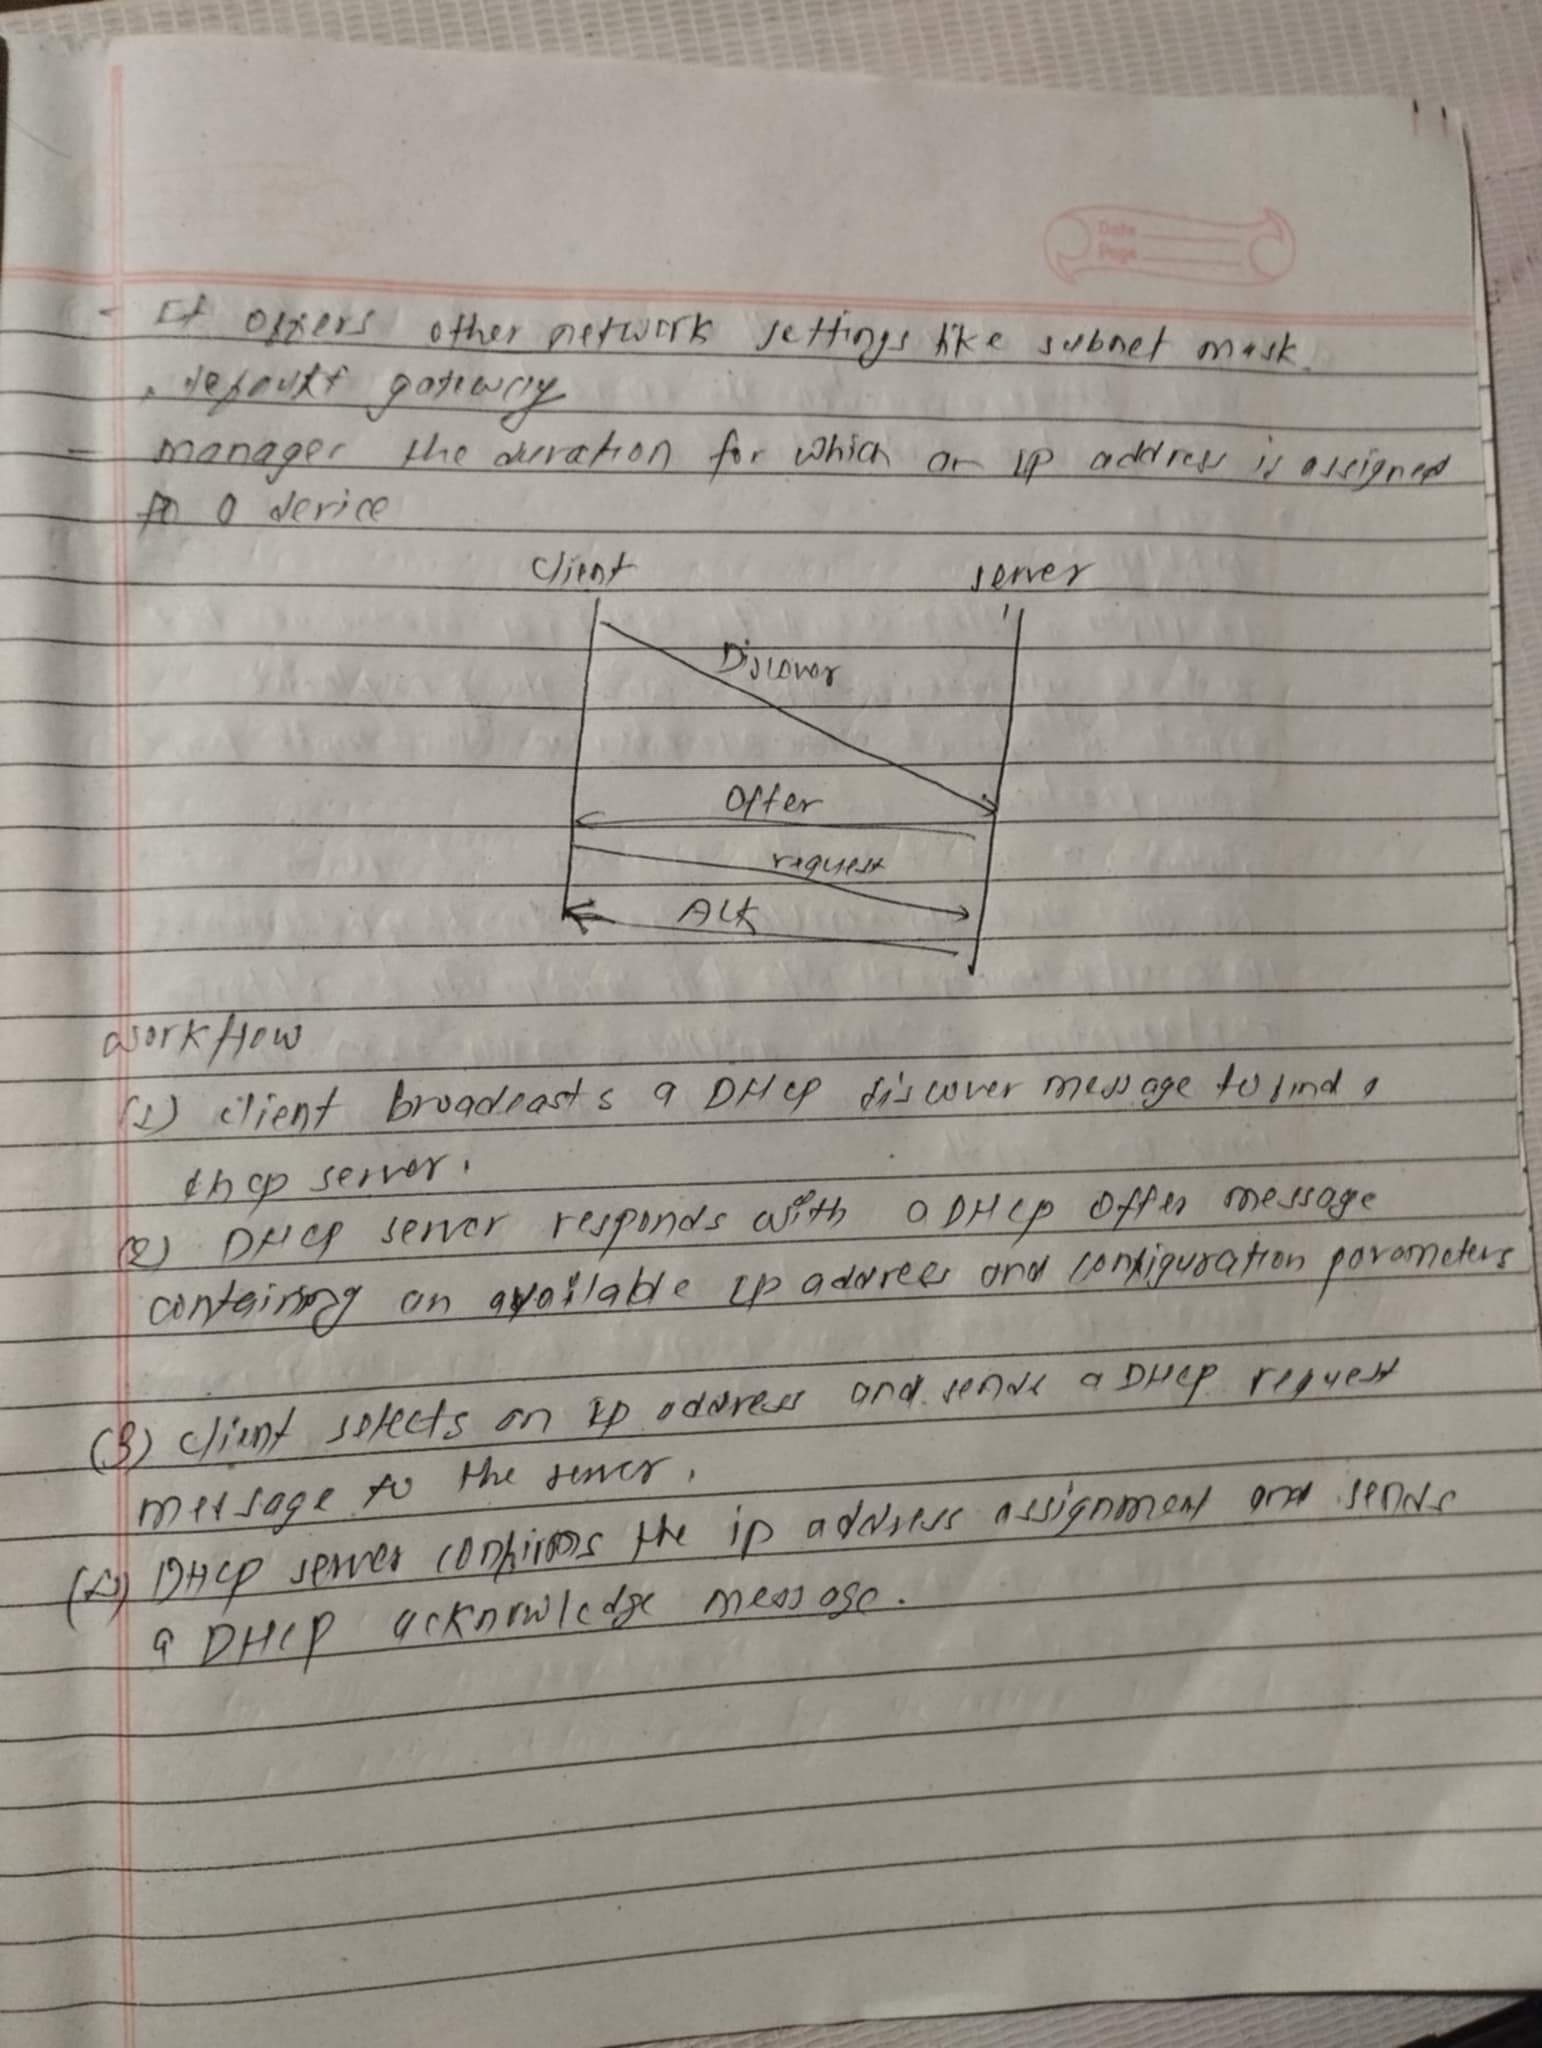 Date
Page
- It offers other network settings like subnet mask
, default gateway
- manages the duration for which an IP address is assigned
to a device
client server
Discover
Offer
request
ACK
workflow
(1) client broadcasts a DHCP discover message to find a
dhcp server.
(2) DHCP server responds with a DHCP Offer message
containing an available Ip address and configuration parameters
(3) client selects an IP address and sends a DHCP request
message to the server.
(4) DHCP server confirms the ip address assignment and sends
a DHCP acknowledge message.